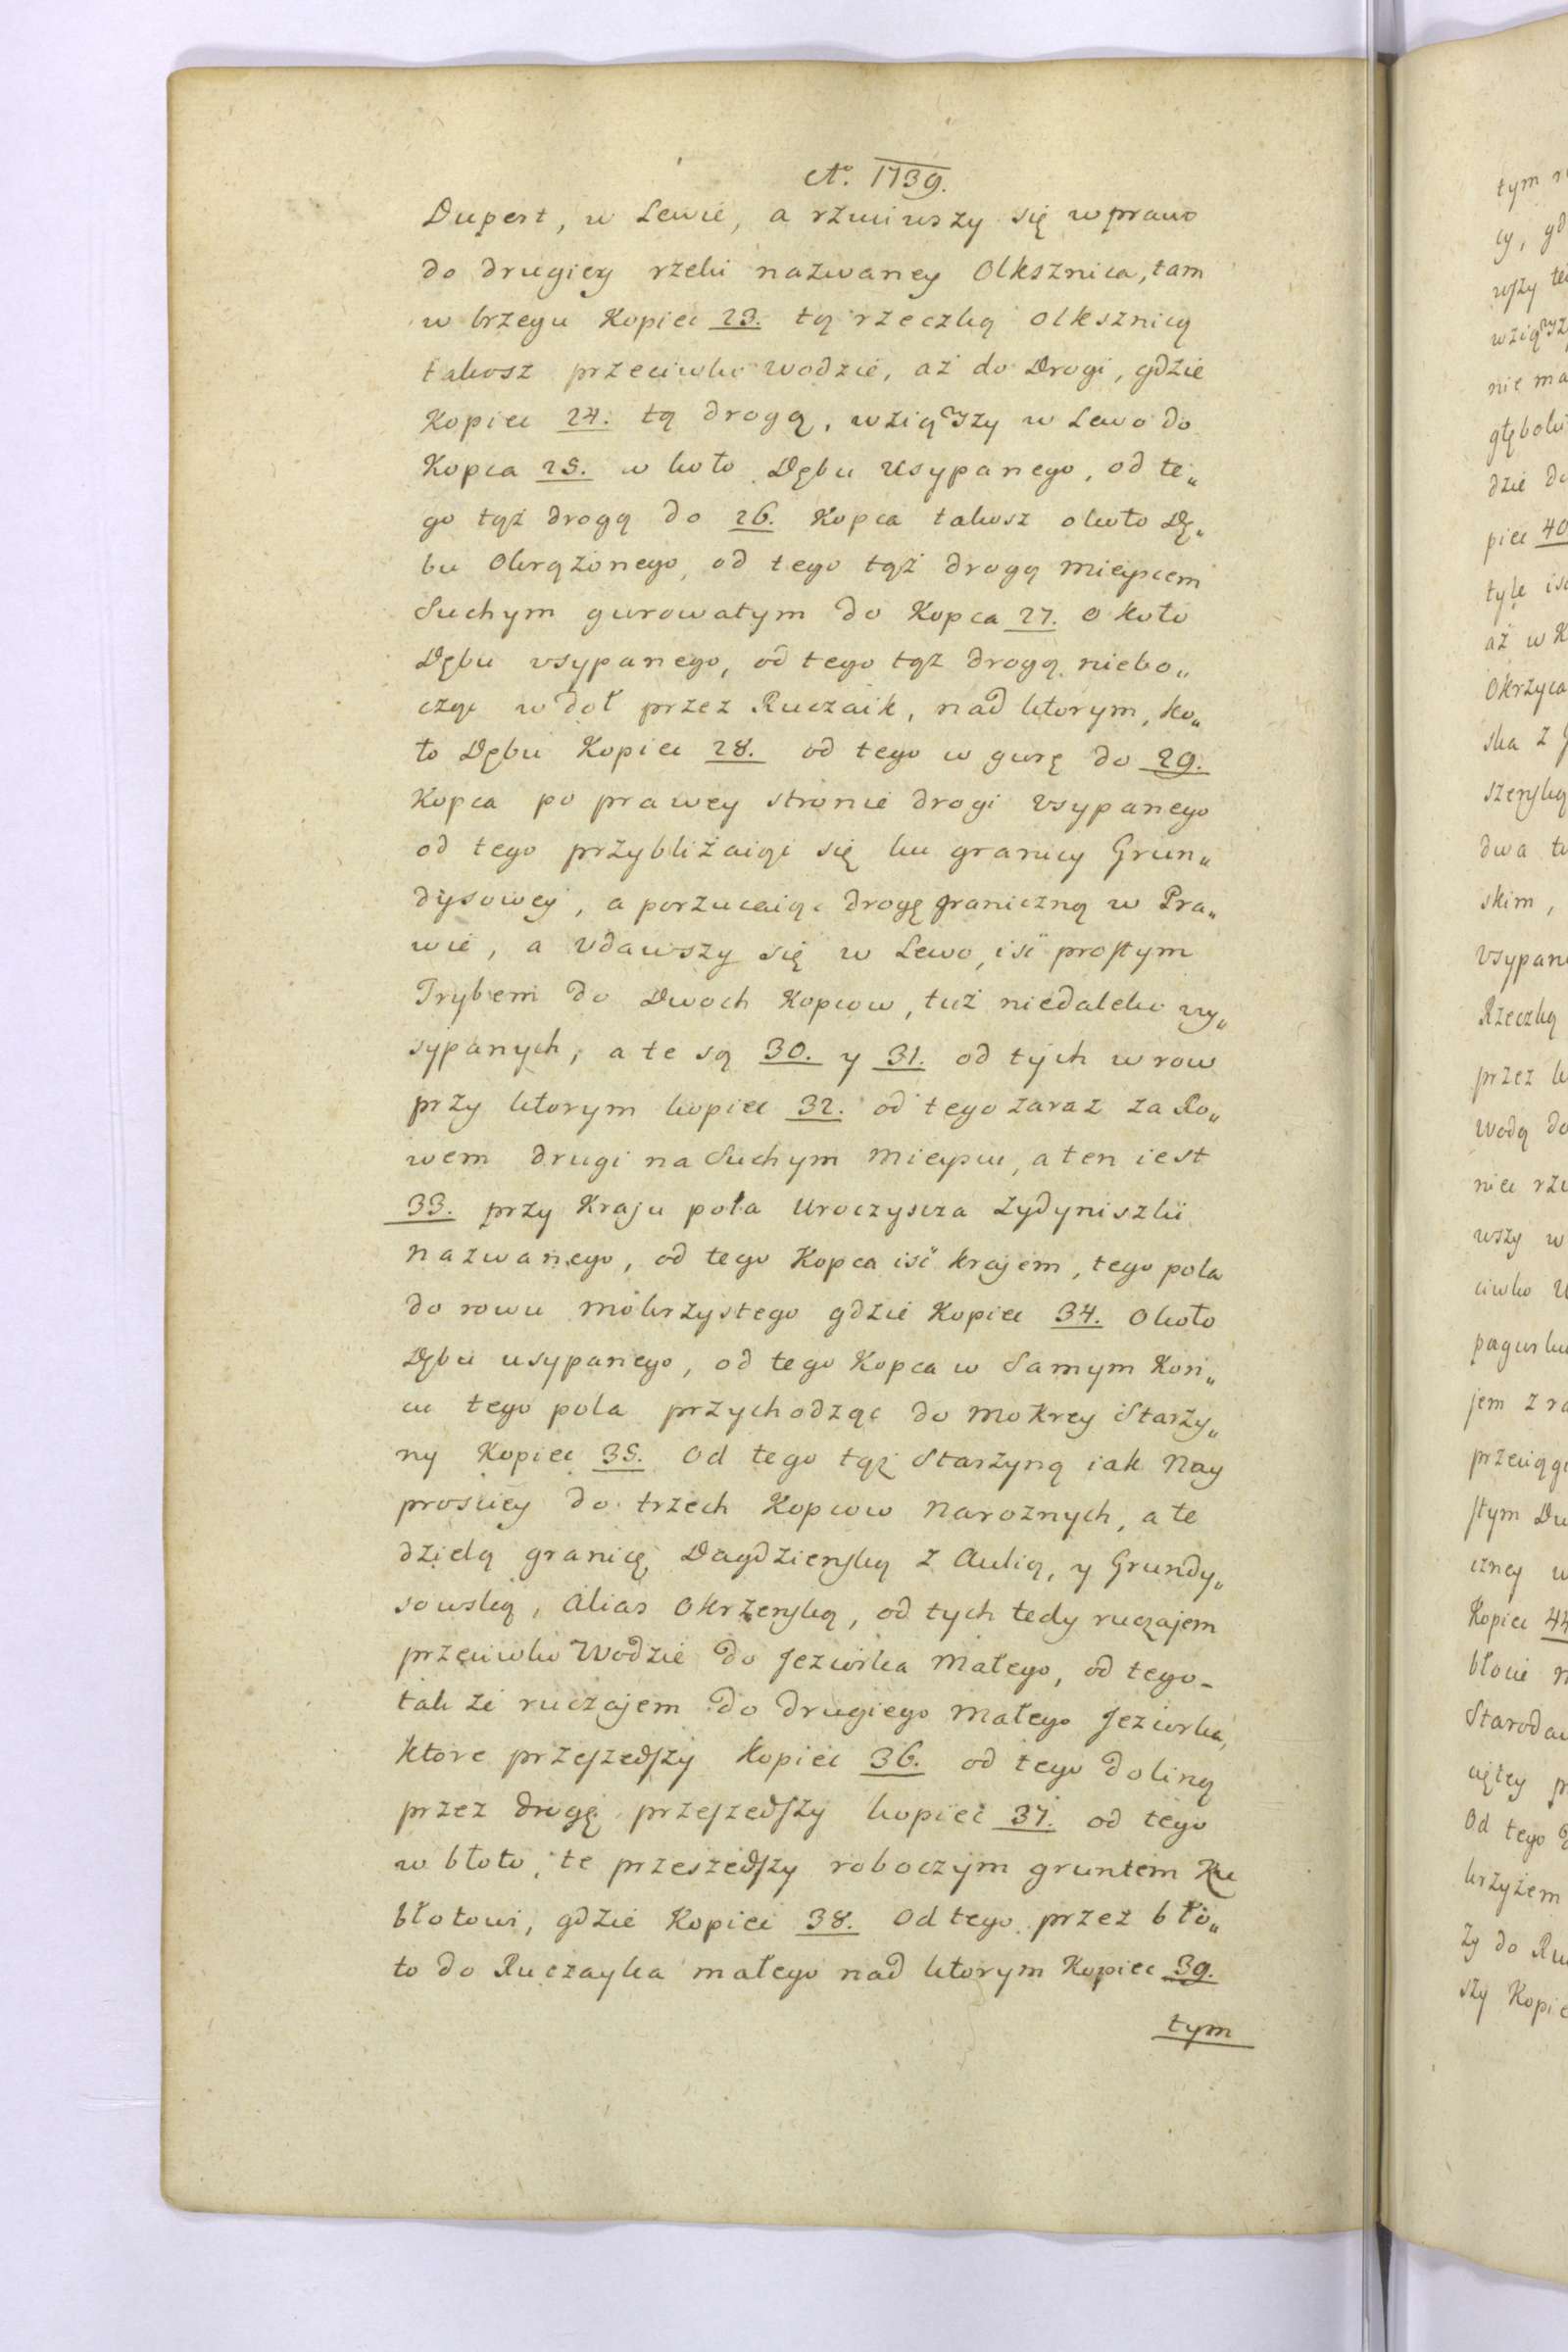 Ao. 1739.
Dupert, w Lewie, a rzuciwszy się wprawo
do drugiey rzeki nazwaney Olksznica, tam
w brzegu Kopiec 23. tą rzeczką Olksznicą
takosz przeciwko wodzie, aż do Drogi, gdzie
Kopiec 24. tą drogą, wziąwszy w Lewo do
Kopca 25. w koło Dębu Usypanego, od te„
go tąż drogą do 26. Kopca takosz około Dę„
bu Okrążonego, od tego tąż drogą mieyscem
Suchym gurowatym do Kopca 27. o koło
Dębu vsypanego, od tego tąż drogą niebo„
cząc w doł przez Ruczaik, nad ktorym, ko„
ło Dębu Kopiec 28. od tego w gurę do 29.
Kopca po prawey stronie drogi vsypanego
od tego przybliżaiąc się ku granicy Grun„
dysowey, a porzucaiąc drogę graniczną w Pra„
wie, a vdawszy się w Lewo, iść prostym
Trybem do Dwoch Kopcow, tuż niedaleko vy„
sypanych, a te są 30. y 31. od tych w row
przy ktorym kopiec 32. od tego zaraz za Ro„
wem drugi na Suchym mieyscu, a ten iest
33. przy Kraju pola Uroczyscza Zydyniszki
nazwanego, od tego Kopca iść krajem, tego pola
do rowu mokrzystego gdzie Kopiec 34. Około
Dębu usypanego, od tego Kopca w Samym Koń„
cu tego pola przychodząc do mokrey Starzy„
ny Kopiec 35. Od tego tąż Starzyną iak Nay
prosciey do trzech Kopcow Narożnych, a te
dzielą granicę, Dagdzieńską z Aulią, y Grundy„
sowską, alias Okrzeńską, od tych tedy ruczajem
przeciwko Wodzie do Jeziorka Małego, od tego-
tak że ruczajem do drugiego Małego Jeziorka,
ktore przeszedszy Kopiec 36. od tego doliną
przez drogę przeszedszy kopiec 37. od tego
w błoto, te przeszedszy roboczym gruntem Ku
błotowi, gdzie Kopiec 38. Od tego przez bło„
to do Ruczayka małego nad ktorym Kopiec 39.
tym